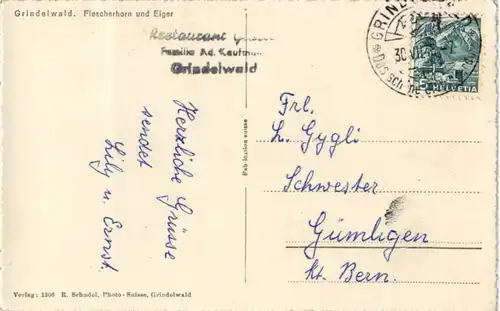 Grindelwald. Fiescherhorn und Eiger
Restaurant
Familie Ad. Kaufmann
Grindelwald
Herzliche Grüsse
sendet
Lily u. Ernst.
Publication suisse
GRINDELWALD
30.VII.
5 HELVETIA
Frl.
L. Gygli
Schwester
Gümligen
Kt. Bern.
Verlag: 1206 R. Schudel, Photo-Suisse, Grindelwald